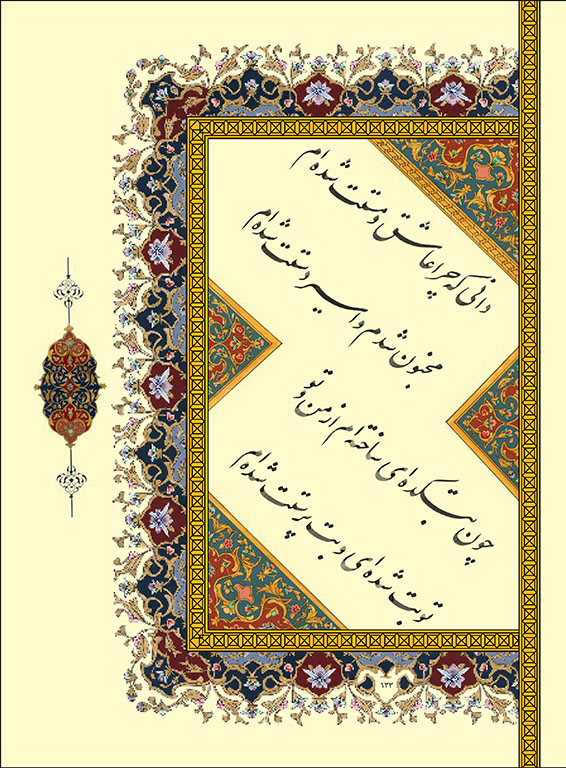 دانی که چرا عاشق و مستت شده‌ام
مجنون شدم و اسیر دستت شده‌ام
چون بتکده‌ای ساخته‌ام از من و تو
تو بت شده‌ای و بت پرستت شده‌ام
۱۲۲